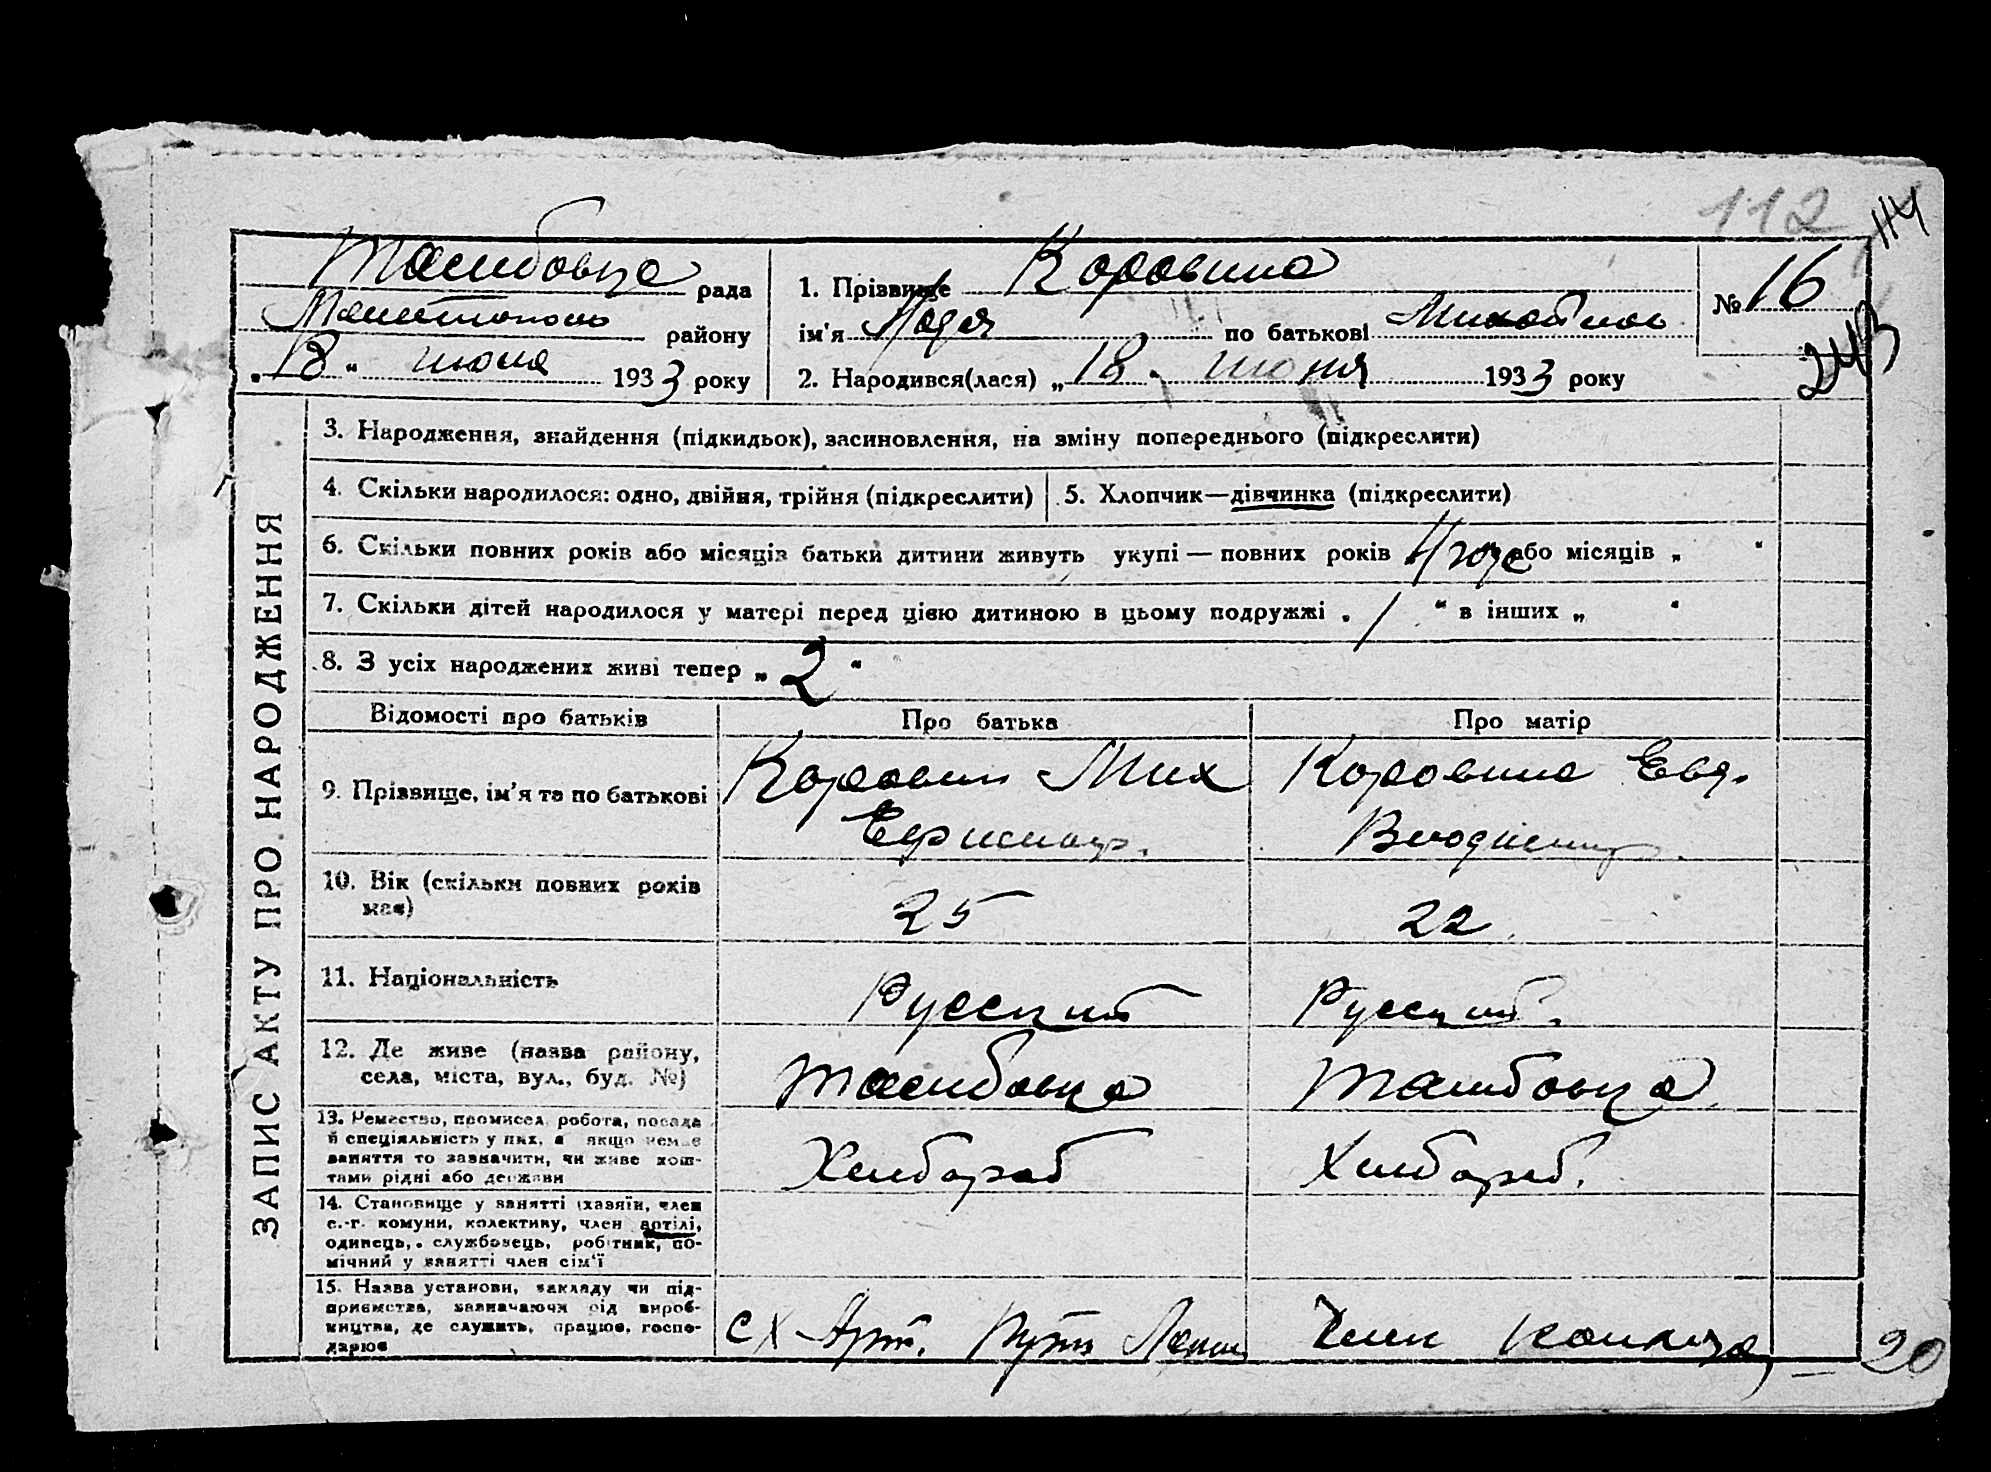 112
114
Тамбовка рада
района
"18" июня 1933 року
1. Прізвище Коровина
ім'я Надя по батькові
№ 16
243
2. Народився(лася) „18" июня 1933 року
ЗАПИС АКТУ ПРО НАРОДЖЕННЯ
3. Народження, знайдення (підкидьок), засиновлення, на зміну попереднього (підкреслити)
4. Скільки народилося: одно, двійня, трійня (підкреслити)
5. Хлопчик—дівчинка (підкреслити)
6. Скільки повних років або місяців батьки дитини живуть укупі — повних років 4 года або місяців „ "
7. Скільки дітей народилося у матері перед цією дитиною в цьому подружжі „ 1 " в інших „ "
8. З усіх народжених живі тепер „ 2 "
Відомості про батьків Про батька Про матір
9. Прізвище, ім'я та по батькові
Коровин Мих
Коровина Евд.
10. Вік (скільки повних років
має)
25
22
11. Національність
Русский
Русский.
12. Де живе (назва району,
села, міста, вул., буд. №)
Тамбовка
Тамбовка
13. Ремество, промисел, робота, посада
й спеціяльність у них, а якщо немає
заняття то зазначити, чи живе кош-
тами рідні або держави
Хлебораб
Хлебораб.
14. Становище у занятті (хазяїн, член
с.-г. комуни, колективу, член артілі,
одинець, службовець, робітник, по-
мічний у занятті член сім'ї
15. Назва установи, закладу чи під-
приємства, зазначаючи рід вироб-
ництва, де служить, працює, госпо-
дарює
СХ Арт. Путь Ленин
Член колхоза
20